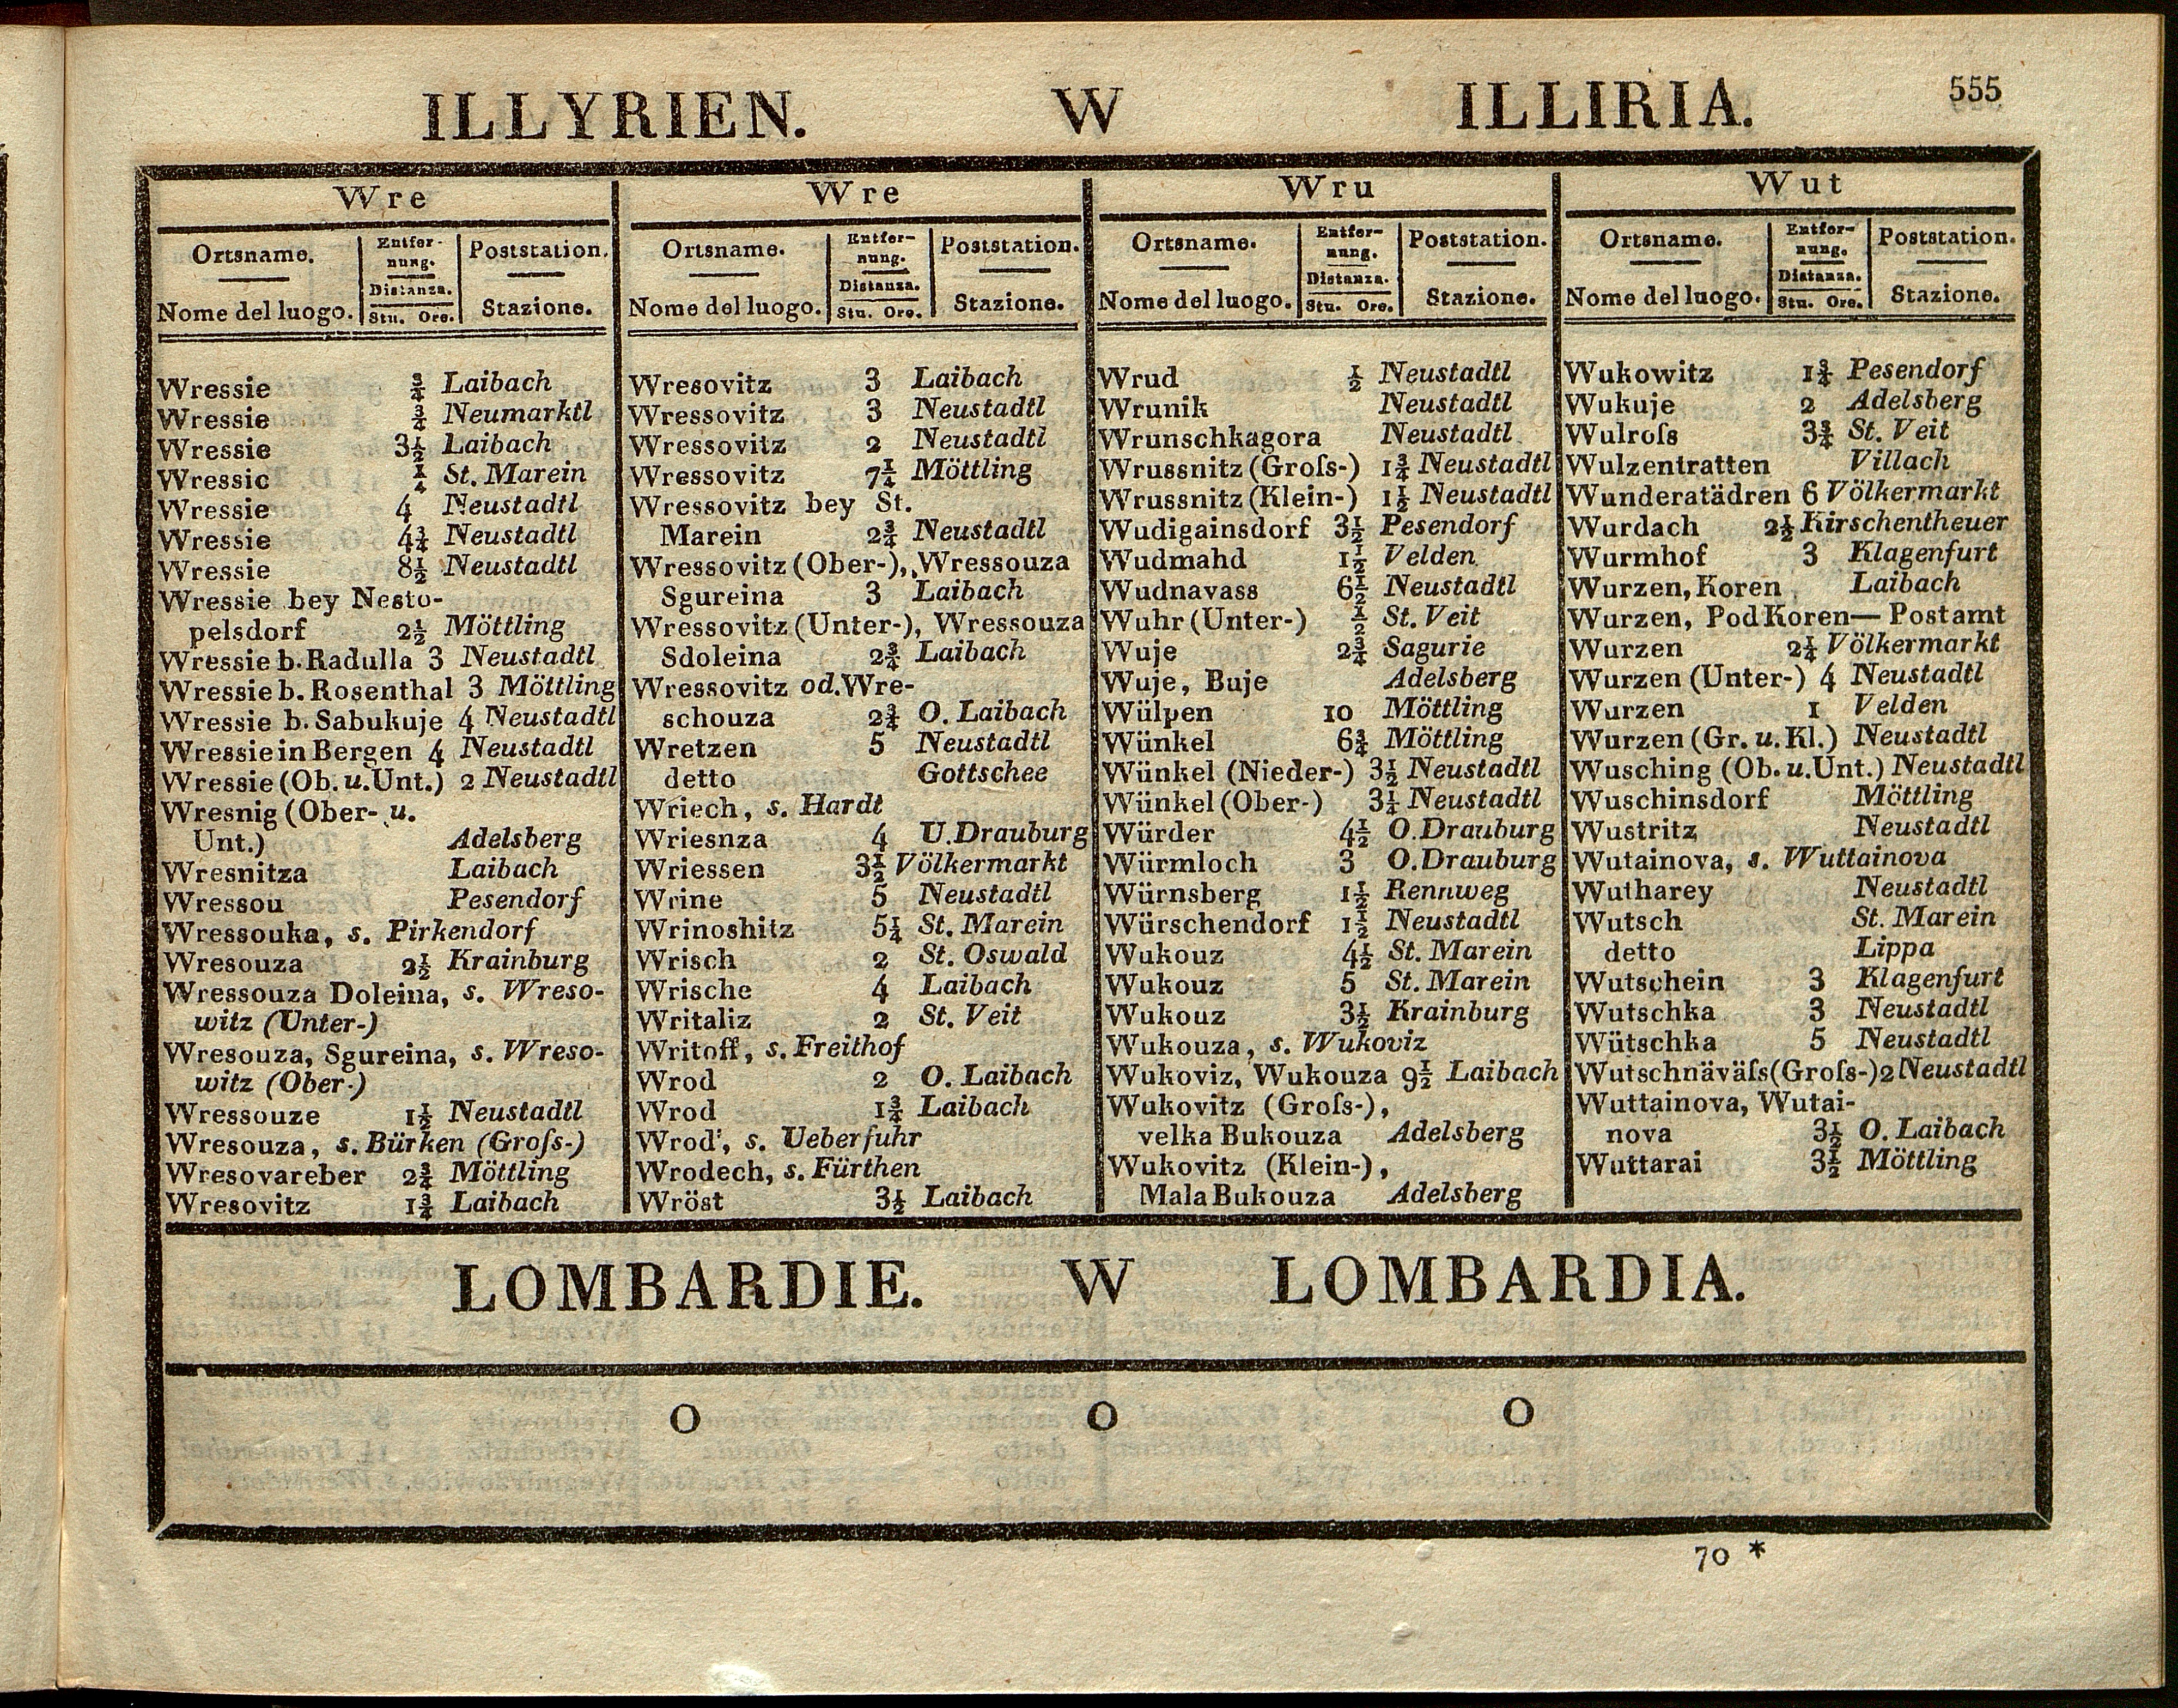 ILLYRIEN. W ILLIRIA. 555
Wre
Ortsname. Entfer- Poststation.
nung.
Distanza.
Nome del luogo. Stu. Ore. Stazione.
Wressie ¾ Laibach
Wressie ¾ Neumarktl
Wressie 3½ Laibach
Wressic ¼ St. Marein
Wressie 4 Neustadtl
Wressie 4¾ Neustadtl
Wressie 8½ Neustadtl
Wressie bey Nesto-
pelsdorf 2½ Möttling
Wressie b. Radulla 3 Neustadtl
Wressie b. Rosenthal 3 Möttling
Wressie b. Sabukuje 4 Neustadtl
Wressie in Bergen 4 Neustadtl
Wressie (Ob. u. Unt.) 2 Neustadtl
Wresnig (Ober- u.
Unt.) Adelsberg
Wresnitza Laibach
Wressou Pesendorf
Wressouka, s. Pirkendorf
Wresouza 2½ Krainburg
Wressouza Doleina, s. Wreso-
witz (Unter-)
Wresouza, Sgureina, s. Wreso-
witz (Ober-)
Wressouze 1½ Neustadtl
Wresouza, s. Bürken (Groſs-)
Wresovareber 2¾ Möttling
Wresovitz 1¾ Laibach
Wre
Ortsname. Entfer- Poststation.
nung.
Distanza.
Nome del luogo. Stu. Ore. Stazione.
Wresovitz 3 Laibach
Wressovitz 3 Neustadtl
Wressovitz 2 Neustadtl
Wressovitz 7¼ Möttling
Wressovitz bey St.
Marein 2¾ Neustadtl
Wressovitz (Ober-), Wressouza
Sgureina 3 Laibach
Wressovitz (Unter-), Wressouza
Sdoleina 2¾ Laibach
Wressovitz od. Wre-
schouza 2¾ O. Laibach
Wretzen 5 Neustadtl
detto Gottschee
Wriech, s. Hardt
Wriesnza 4 U. Drauburg
Wriessen 3½ Völkermarkt
Wrine 5 Neustadtl
Wrinoshitz 5¼ St. Marein
Wrisch 2 St. Oswald
Wrische 4 Laibach
Writaliz 2 St. Veit
Writoff, s. Freithof
Wrod 2 O. Laibach
Wrod 1¾ Laibach
Wrod', s. Ueberfuhr
Wrodech, s. Fürthen
Wröst 3½ Laibach
Wru
Ortsname. Entfer- Poststation.
nung.
Distanza.
Nome del luogo. Stu. Ore. Stazione.
Wrud ½ Neustadtl
Wrunik Neustadtl
Wrunschkagora Neustadtl
Wrussnitz (Groſs-) 1¾ Neustadtl
Wrussnitz (Klein-) 1½ Neustadtl
Wudigainsdorf 3½ Pesendorf
Wudmahd 1½ Velden
Wudnavass 6½ Neustadtl
Wuhr (Unter-) ½ St. Veit
Wuje 2¾ Sagurie
Wuje, Buje Adelsberg
Wülpen 10 Möttling
Wünkel 6¾ Möttling
Wünkel (Nieder-) 3½ Neustadtl
Wünkel (Ober-) 3¼ Neustadtl
Würder 4½ O. Drauburg
Würmloch 3 O. Drauburg
Würnsberg 1½ Rennweg
Würschendorf 1½ Neustadtl
Wukouz 4½ St. Marein
Wukouz 5 St. Marein
Wukouz 3½ Krainburg
Wukouza, s. Wukoviz
Wukoviz, Wukouza 9½ Laibach
Wukovitz (Groſs-),
velka Bukouza Adelsberg
Wukovitz (Klein-),
Mala Bukouza Adelsberg
Wut
Ortsname. Entfer- Poststation.
nung.
Distanza.
Nome del luogo. Stu. Ore. Stazione.
Wukowitz 1¾ Pesendorf
Wukuje 2 Adelsberg
Wulroſs 3¾ St. Veit
Wulzentratten Villach
Wunderatädren 6 Völkermarkt
Wurdach 2½ Kirschentheuer
Wurmhof 3 Klagenfurt
Wurzen, Koren Laibach
Wurzen, Pod Koren — Postamt
Wurzen 2¼ Völkermarkt
Wurzen (Unter-) 4 Neustadtl
Wurzen 1 Velden
Wurzen (Gr. u. Kl.) Neustadtl
Wusching (Ob. u. Unt.) Neustadtl
Wuschinsdorf Möttling
Wustritz Neustadtl
Wutainova, s. Wuttainova
Wutharey Neustadtl
Wutsch St. Marein
detto Lippa
Wutschein 3 Klagenfurt
Wutschka 3 Neustadtl
Wütschka 5 Neustadtl
Wutschnäväſs (Groſs-) 2 Neustadtl
Wuttainova, Wutai-
nova 3½ O. Laibach
Wuttarai 3½ Möttling
LOMBARDIE. W LOMBARDIA.
O O O
70 *